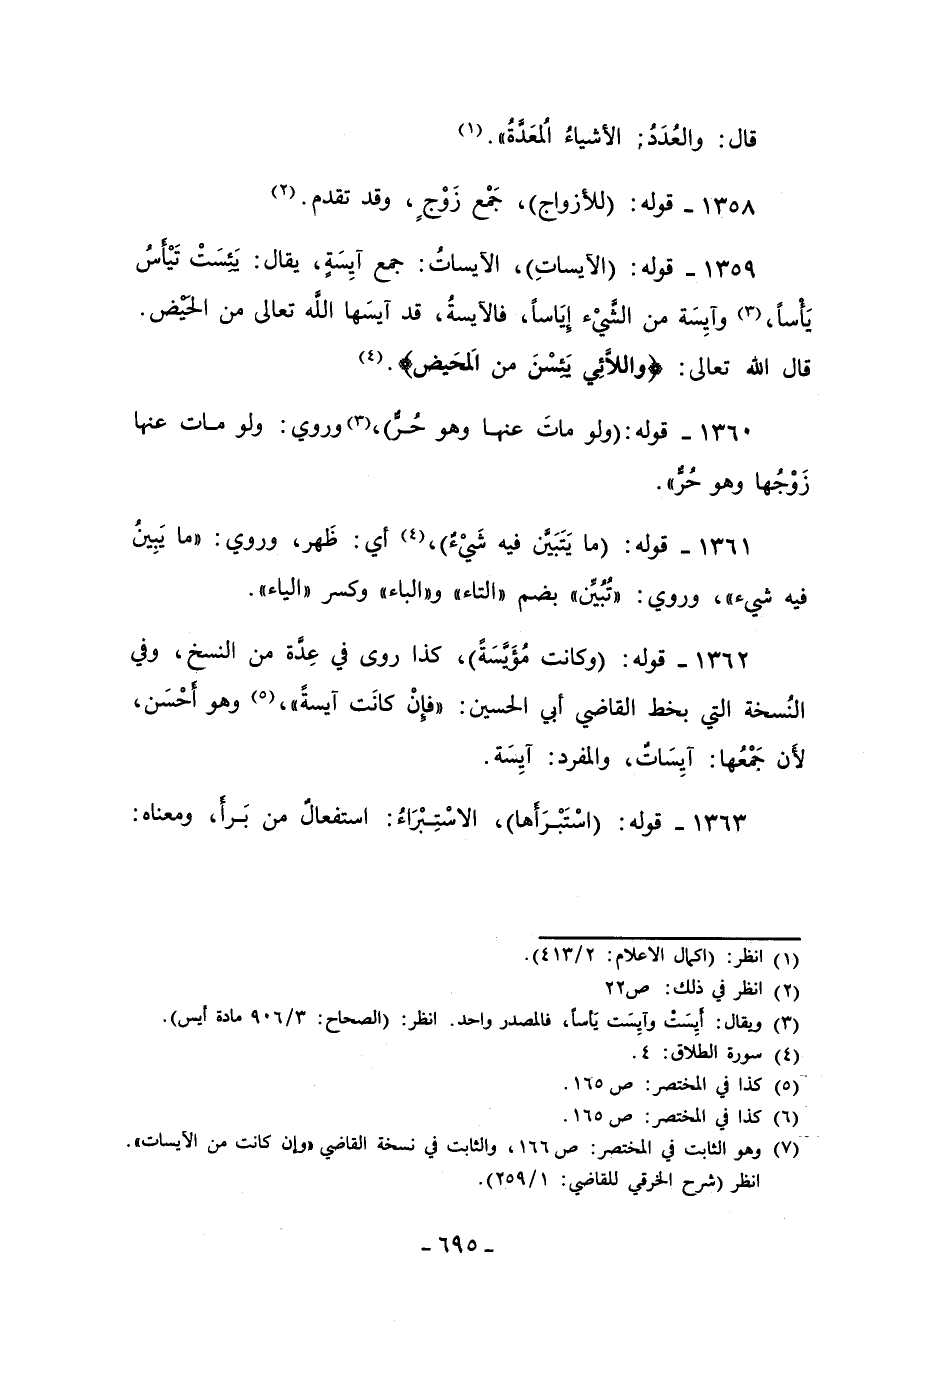 قال: والعُدَدُ: الأشياءُ المُعَدَّةُ». (١)
١٣٥٨ ـ قوله: (للأزواج)، جَمْع زَوْجٍ، وقد تقدم. (٢)
١٣٥٩ ـ قوله: (الآيساتِ)، الآيساتُ: جمع آيِسَةٍ، يقال: يَئِسَتْ تَيْأَسُ
يَأْساً، (٣) وآيِسَة من الشَّيْء إيَاساً، فالآيسةُ، قد آيسَها اللَّه تعالى من الحَيْض.
قال الله تعالى: ﴿واللاَّئِي يَئِسْنَ من المَحَيض﴾. (٤)
١٣٦٠ ـ قوله: (ولو ماتَ عنها وهو حُرٌّ)، (٣) وروي: ولو مات عنها
زَوْجُها وهو حُرٌّ».
١٣٦١ ـ قوله: (ما يَتَبَيَّن فيه شَيْءٌ)، (٤) أي: ظَهر، وروي: «ما يَبِينُ
فيه شيء»، وروي: «تُبُيِّن» بضم «التاء» و«الباء» وكسر «الياء».
١٣٦٢ ـ قوله: (وكانت مُؤَيَّسَةً)، كذا روى في عِدَّة من النسخ، وفي
النُسخة التي بخط القاضي أبي الحسين: «فإنْ كانَت آيسةً»، (٥) وهو أَحْسَن،
لأن جَمْعُها: آيِسَاتٌ، والمفرد: آيِسَة.
١٣٦٣ ـ قوله: (اسْتَبْرَأَها)، الاسْتِبْرَاءُ: استفعالٌ من بَرأَ، ومعناه:
(١) انظر: (اكمال الاعلام: ٤١٣/٢).
(٢) انظر في ذلك: ص٢٢
(٣) ويقال: أَيِسَتْ وآيِسَت يَأساً، فالمصدر واحد. انظر: (الصحاح: ٩٠٦/٣ مادة أيس).
(٤) سورة الطلاق: ٤.
(٥) كذا في المختصر: ص ١٦٥.
(٦) كذا في المختصر: ص ١٦٥.
(٧) وهو الثابت في المختصر: ص ١٦٦، والثابت في نسخة القاضي «وإن كانت من الآيسات».
انظر (شرح الخرقي للقاضي: ٢٥٩/١).
ـ ٦٩٥ ـ